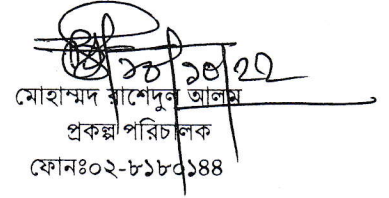 ১৩/১০/২২
মোহাম্মদ রাশেদুল আলম
প্রকল্প পরিচালক
ফোনঃ০২-৮১৮০১৪৪